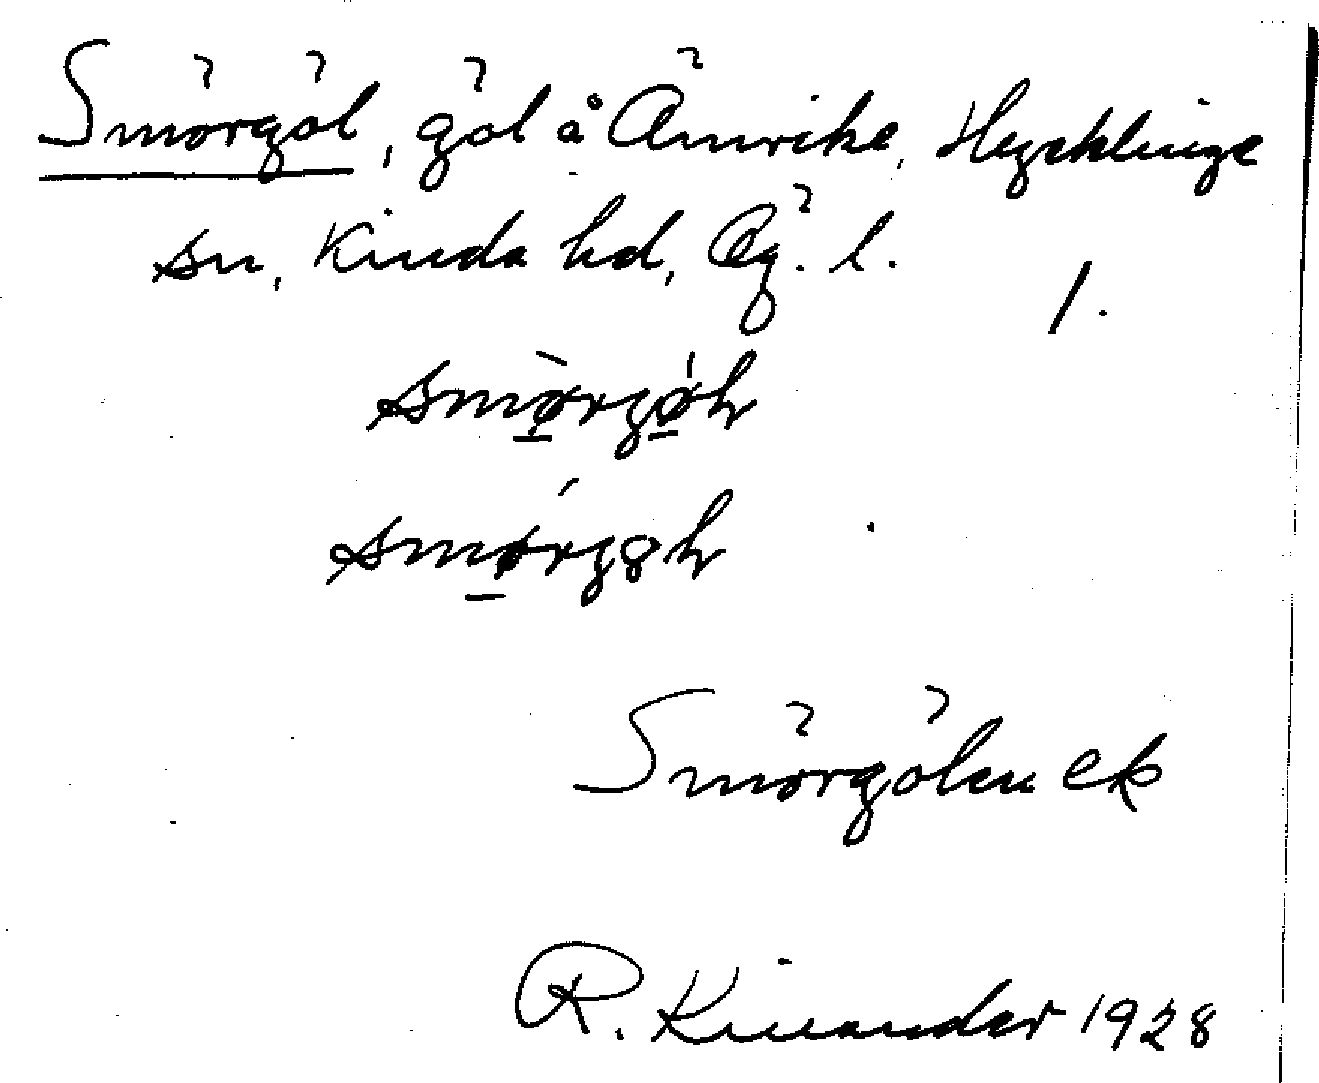 Smörgöl, göl å Ämrike, Hycklinge
sn, Kinda hd, Ög. l.
1.
smø̀rgǿl
smǿrgöl
Smörgölen ek
R. Kinander 1928